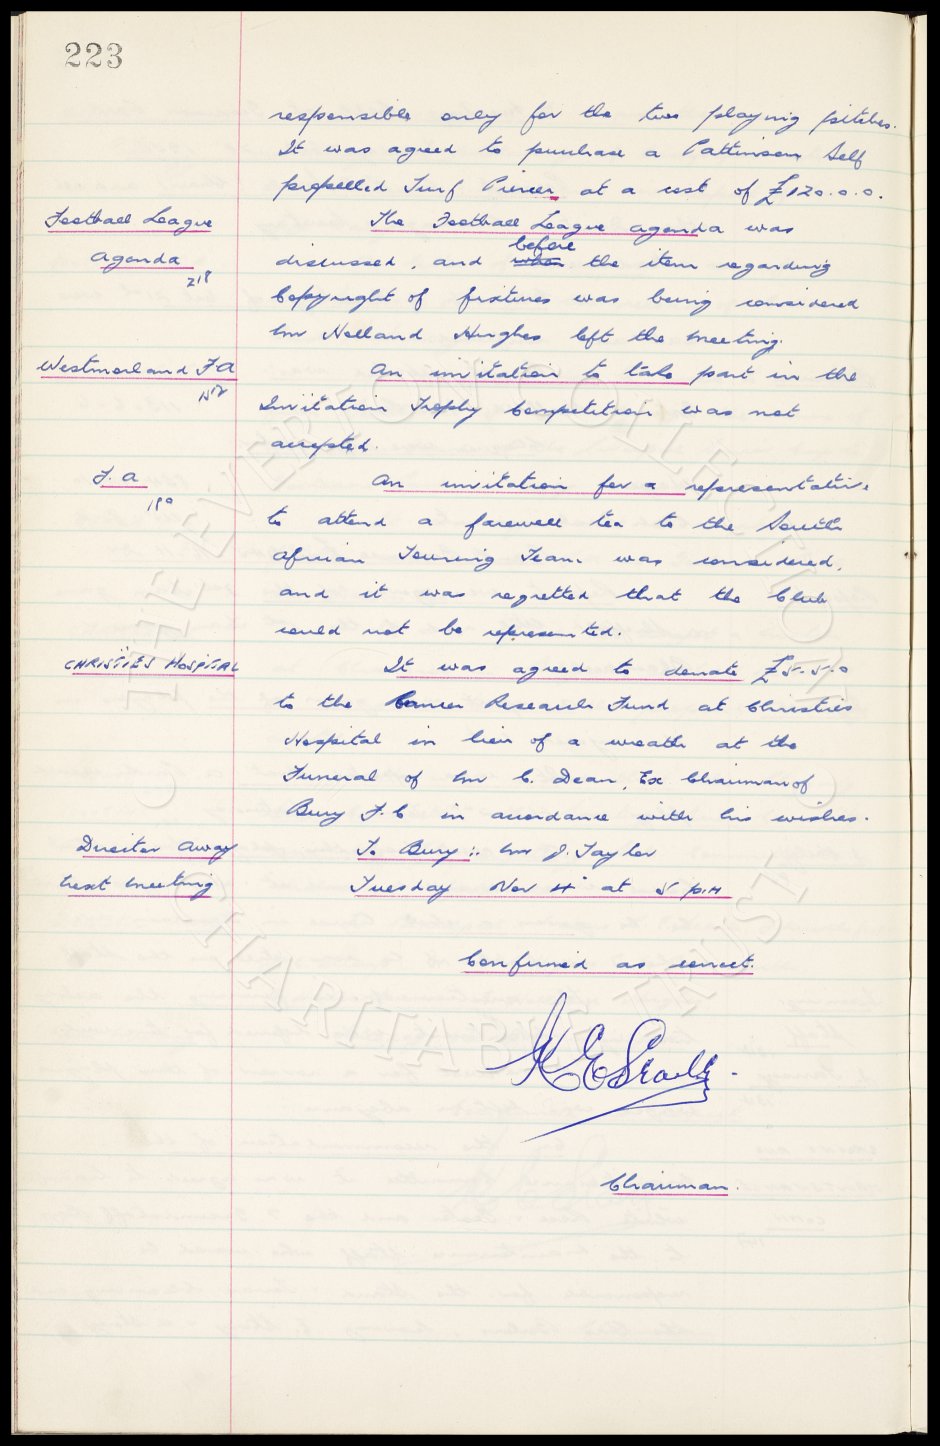 223
responsible only for the two playing pitches.
It was agreed to purchase a Pattinson Self
propelled Turf Piercer at a cost of £120.0.0.
Football League
Agenda
218
The Football League agenda was
before
discussed, and when the item regarding
Copyright of fixtures was being considered
Mr Holland Hughes left the meeting.
Westmorland F A
An invitation to take part in the
Invitation Trophy Competition was not
accepted.
F. A
An invitation for a representative
to attend a farewell tea to the South
African Touring Team was considered,
and it was regretted that the Club
could not be represented.
CHRISTIES HOSPITAL
It was agreed to donate £5-5-0
to the Cancer Research Fund at Christies
Hospital in lieu of a wreath at the
Funeral of Mr C. Dean, Ex Chairman of
Bury F.C in accordance with his wishes.
Director Away
To Bury :. Mr J. Taylor
Next Meeting
Tuesday Nov 4 at 5 p.m
Confirmed as correct.
Chairman.
THE EVERTON COLLECTION
CHARITABLE TRUST